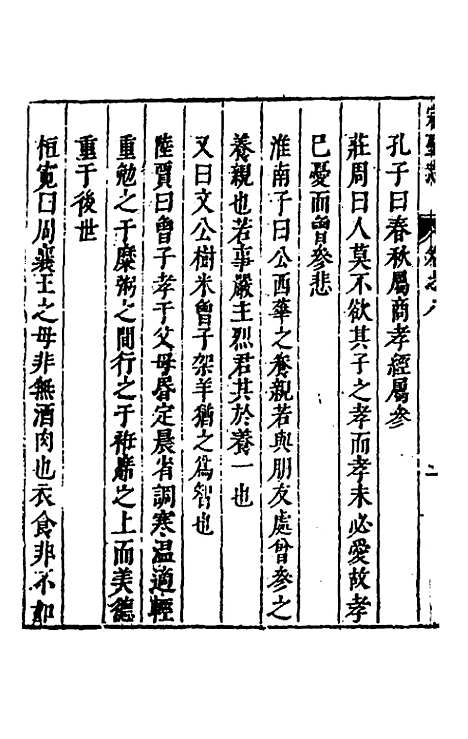 孔子曰春秋屬商孝經屬參
莊周曰人莫不欲其子之孝而孝未必愛故孝
已憂而曾參悲
淮南子曰公西華之養親若與朋友處曾參之
養親也若事嚴主烈君其於養一也
又曰文公樹米曾子架羊猶之為智也
陸賈曰曾子孝于父母昏定晨省調寒温適輕
重勉之于糜粥之間行之于袵席之上而美德
重于後世
恒寛曰周襄王之母非無酒肉也衣食非不如